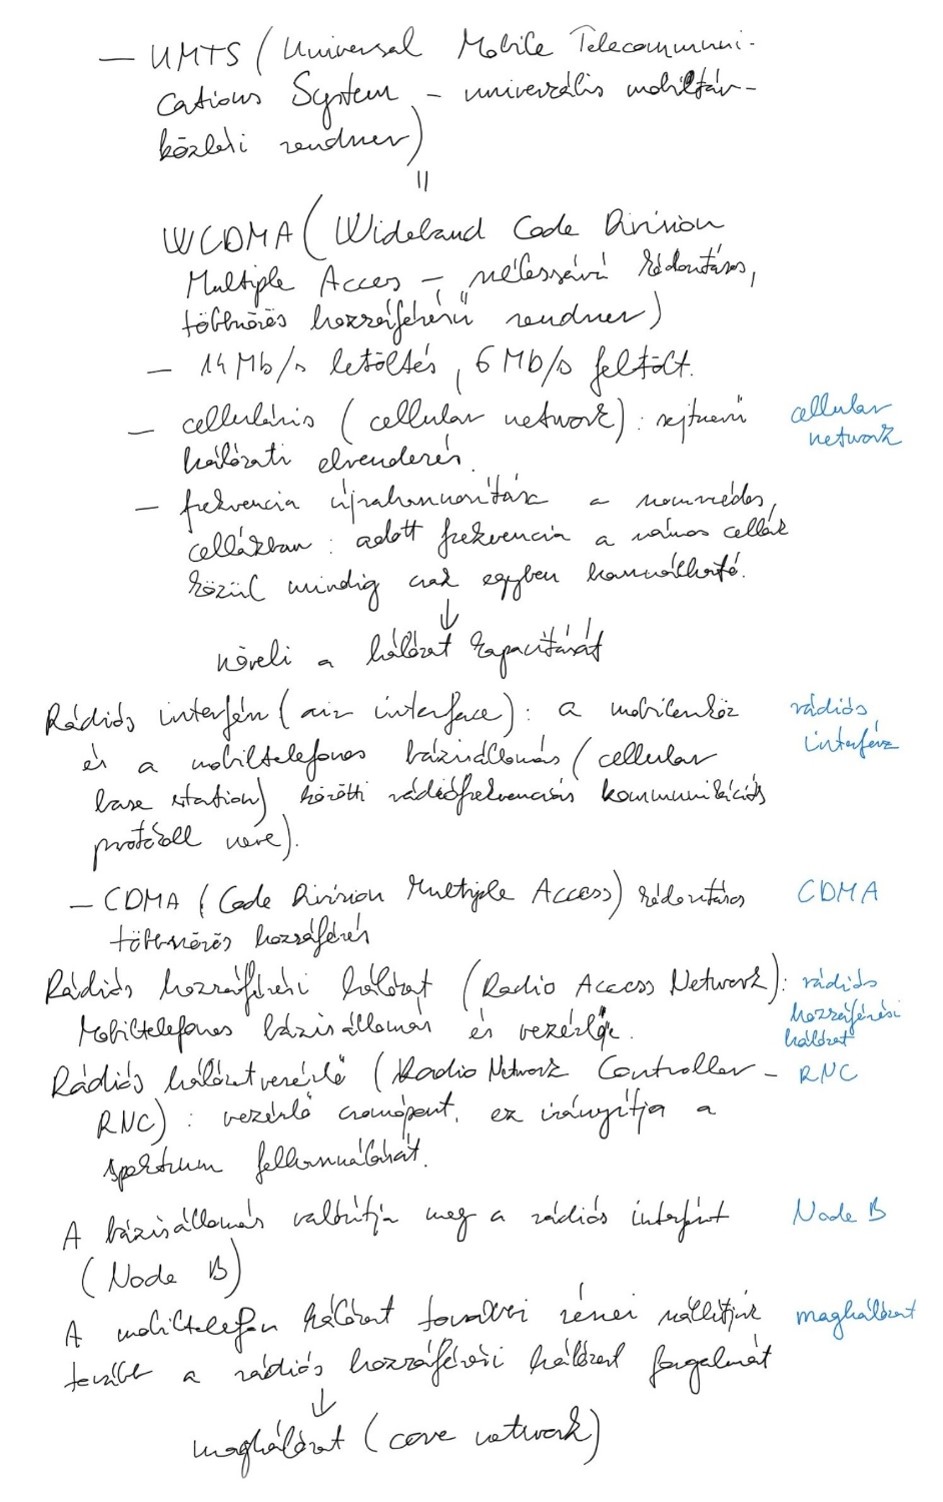 — UMTS (Universal Mobile Telecommuni-
cations System – univerzális mobiltáv-
közlési rendszer)
=
WCDMA (Wideband Code Division
Multiple Acces – szélessávú kódosztásos,
többszörös hozzáférésű rendszer)
— 14 Mb/s letöltés, 6 Mb/s feltölt.
— celluláris (cellular network): sejtszerű
hálózati elrendezés.
cellular
network
— frekvencia újrahasznosítása a szomszédos,
cellákban: adott frekvencia a számos cellák
közül mindig csak egyben használható.
↓
növeli a hálózat kapacitását
Rádiós interfész (air interface): a mobileszköz
és a mobiltelefonos bázisállomás (cellular
base station) közötti rádiófrekvenciás kommunikációs
protokoll neve).
rádiós
interfész
— CDMA (Code Division Multiple Access) kódosztásos
többszörös hozzáférés
CDMA
Rádiós hozzáférési hálózat (Radio Access Network):
Mobiltelefonos bázisállomás és vezérlője.
rádiós
hozzáférési
hálózat
Rádiós hálózatvezérlő (Radio Network Controller –
RNC): vezérlő csomópont, ez irányítja a
spektrum felhasználását.
RNC
A bázisállomás valósítja meg a rádiós interfészt
(Node B)
Node B
A mobiltelefon hálózat további részei szállítják
tovább a rádiós hozzáférési hálózat forgalmát
maghálózat
↓
maghálózat (core network)